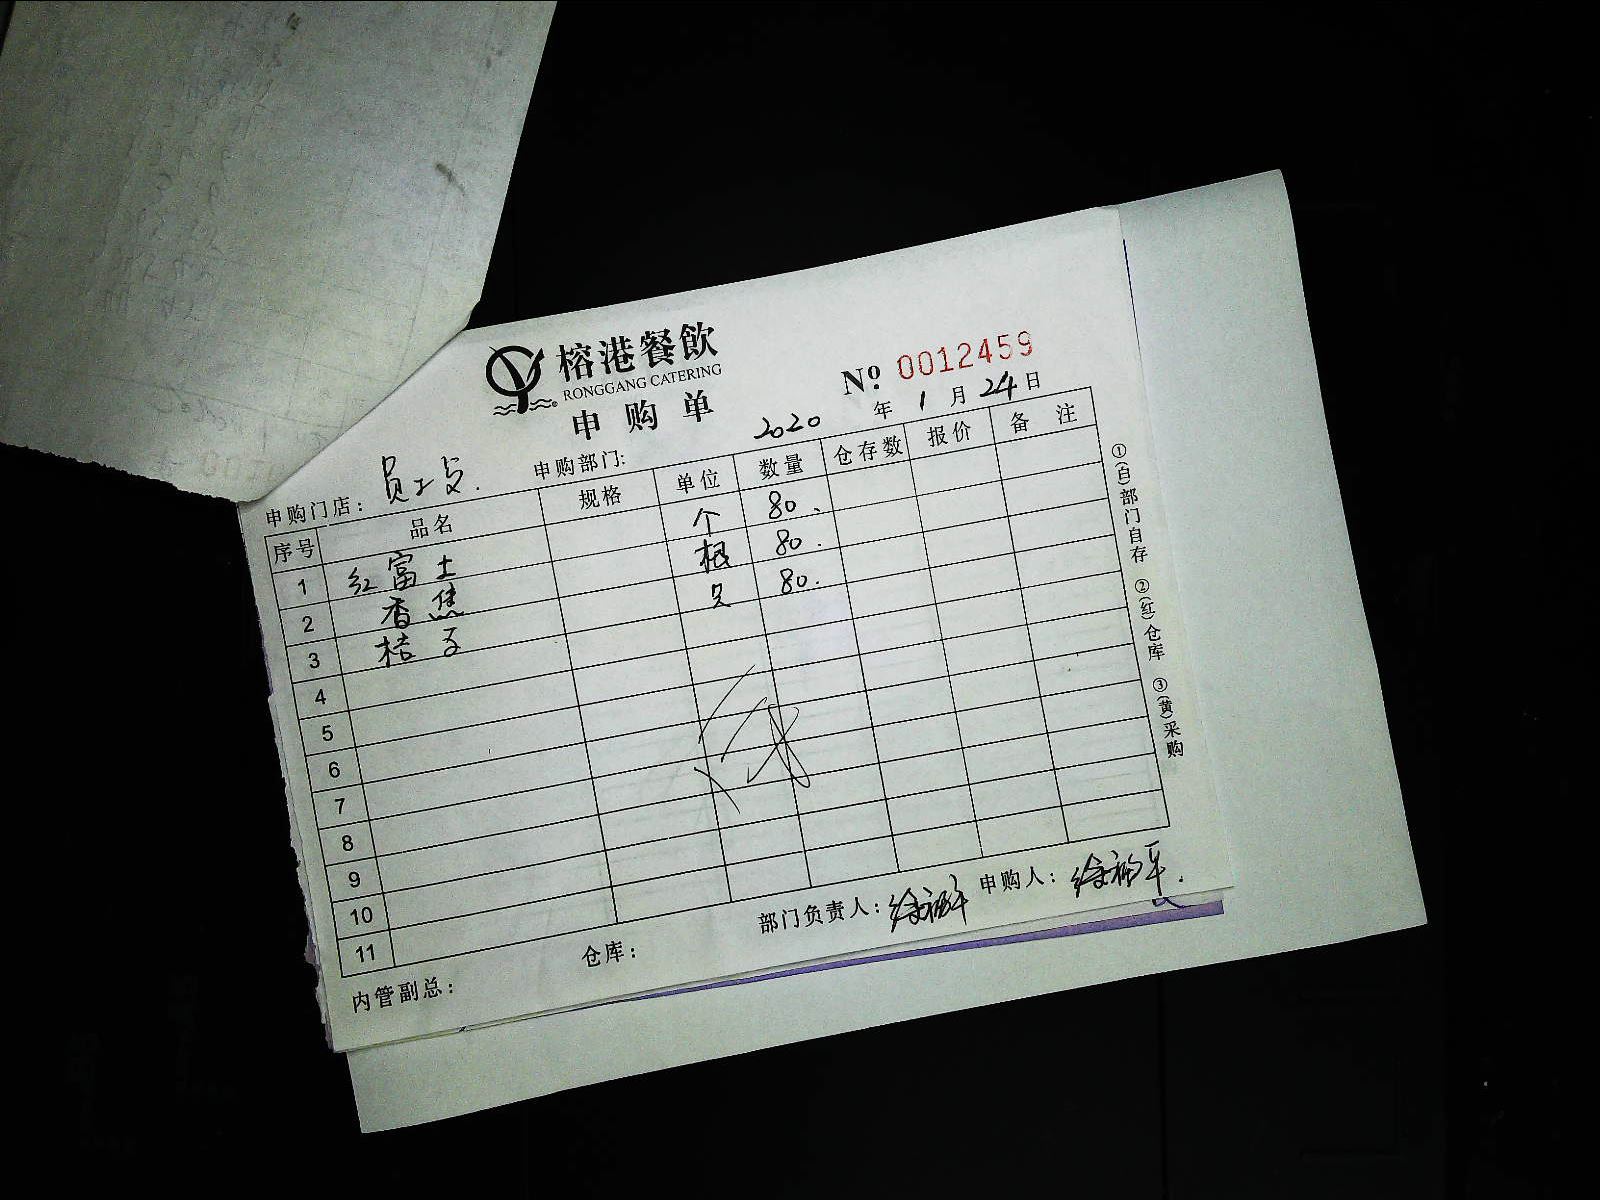 榕港餐飲
RONGGANG CATERING
申购单
№ 0012459
2020 年 1 月 24 日
申购门店： 员工 申购部门:
序号 品名 规格 单位 数量 仓存数 报价 备注
1 红富士 个 80.
2 香焦 根 80.
3 桔子 只 80.
4
5
6
7
8
9
10
11
内管副总： 仓库： 部门负责人: 徐福平 申购人: 徐福平.
①(白)部门自存 ②(红)仓库 ③(黄)采购